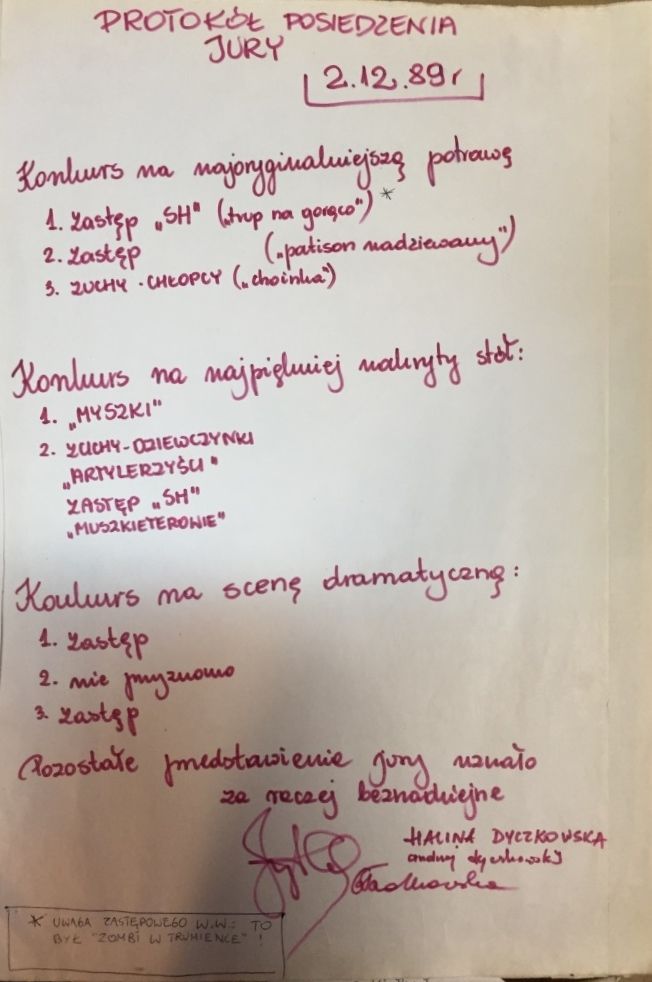 PROTOKÓŁ POSIEDZENIA
JURY
2.12.89r
Konkurs na najoryginalniejszą potrawę
1. Zastęp „SH" („trup na gorąco") *
2. Zastęp („patison nadziewany")
3. ZUCHY - CHŁOPCY („choinka")
Konkurs na najpiękniej nakryty stół:
1. „MYSZKI"
2. ZUCHY-DZIEWCZYNKI
„ARTYLERZYŚCI"
ZASTĘP „SH"
„MUSZKIETEROWIE"
Konkurs na scenę dramatyczną:
1. Zastęp
2. nie przyznano
3. Zastęp
Pozostałe przedstawienie jury uznało
za raczej beznadziejne
HALINA DYCZKOWSKA
andrzej dyczkowski
* UWAGA ZASTĘPOWEGO W.W.: TO
BYŁ "ZOMBI W TRUMIENCE" !